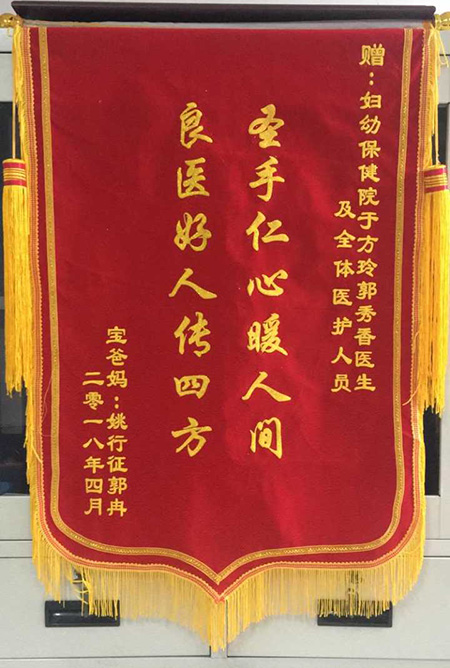 赠：妇幼保健院于方玲郭秀香医生
及全体医护人员
圣手仁心暖人间
良医好人传四方
宝爸妈：姚行征郭冉
二零一八年四月